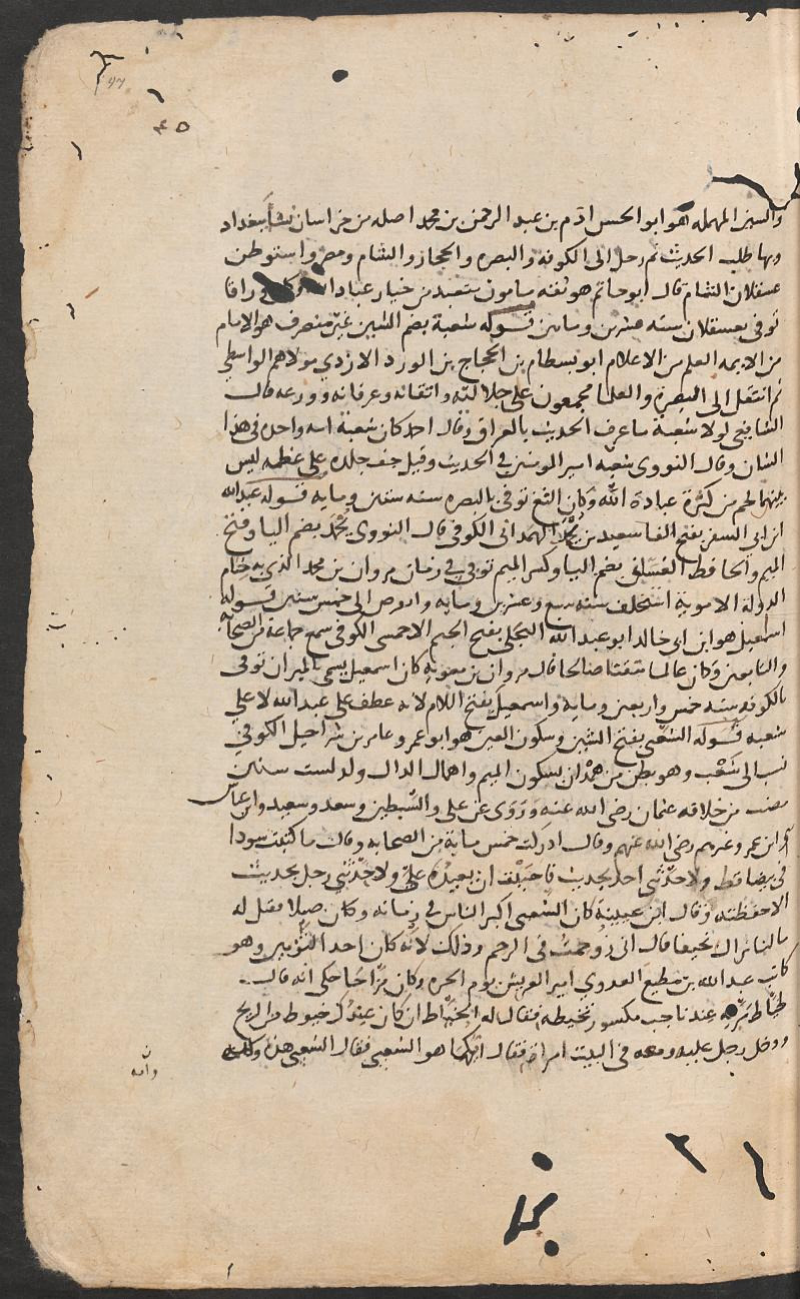 ٤٥
والسين المهمله هو ابو الحسن ادم بن عبد الرحمن بن محمد اصله من خراسان نشأ ببغداد
وبها طلب الحديث ثم رحل الى الكوفه والبصره والحجاز والشام ومصر واستوطن
عسقلان الشام قال ابو حاتم هو ثقه مامون متعبد من خيار عباد الله وكان وراقا
توفى بعسقلان سنه عشرين ومايتين قوله شعبة بضم الشين غير منصرف هو الامام
من الايمه العلم من الاعلام ابو بسطام بن الحجاج بن الورد الازدي مولاهم الواسطي
ثم انتقل الى البصرة والعلما مجمعون على جلالته واتقانه وعرفانه وورعه قال
الشافعي لولا شعبة ما عرف الحديث بالعراق وقال احمد كان شعبة امه واحده في هذا
الشان وقال النووى شعبه امير المومنين في الحديث وقيل جف جلده على عظمه ليس
بينهما لحم من كثرة عبادة الله وكان الثغ توفى بالبصره سنه ستين ومايه قوله عبد الله
ابن ابي السفر بفتح الفا سعيد بن يحمد الهمدانى الكوفى قال النووى يحمد بضم اليا وفتح
الميم والحافظ الغسانى بضم اليا وكسر الميم توفى في زمان مروان بن محمد الذي به ختام
الدولة الاموية استخلف سنه سبع وعشرين ومايه وادوص الى خمس سنين قوله
اسمعيل هو ابن ابى خالد ابو عبد الله البجلي بفتح الجيم الاحمسى الكوفى سمع جماعة من الصحابه
والتابعين وكان عالما متقنا صالحا قال مروان بن معويه كان اسمعيل يسمى بالميزان توفى
بالكوفه سنه خمس واربعين ومايه واسمعيل بفتح اللام لانه عطف على عبد الله لا على
شعبه قوله الشعبى بفتح الشين وسكون العين هو ابو عمرو عامر بن شراحيل الكوفى
نسب الى شعب وهو بطن من همدان بسكون الميم واهمال الدال ولد لست سنين
مضت من خلافه عثمان رضي الله عنه وروى عن على والسبطين وسعد وسعيد وابن عباس
وابن عمر وغيرهم رضي الله عنهم وقال ادركت خمس مايه من الصحابه وقال ما كتبت سودا
في بيضا قط ولا حدثنى احد بحديث فاحببت ان يعيده على ولا حدثنى رجل بحديث
الا حفظته وقال ابن عيينة كان الشعبى اكبر الناس في زمانه وكان ضيلا فقيل له
ما لنا نراك نحيفا قال انى زوحمت فى الرحم وذلك لانه كان احد التؤمين وهو
كاتب عبد الله بن مطيع العدوي امير القريش يوم الحره وكان مزاحا حكى انه قال
لخياط مر به عندنا حب مكسور تخيطه فقال له الخياط ان كان عندك خيوط من الريح
ودخل رجل عليه ومعه فى البيت امراة فقال ايكما هو الشعبى فقال الشعبى هذه
وامه